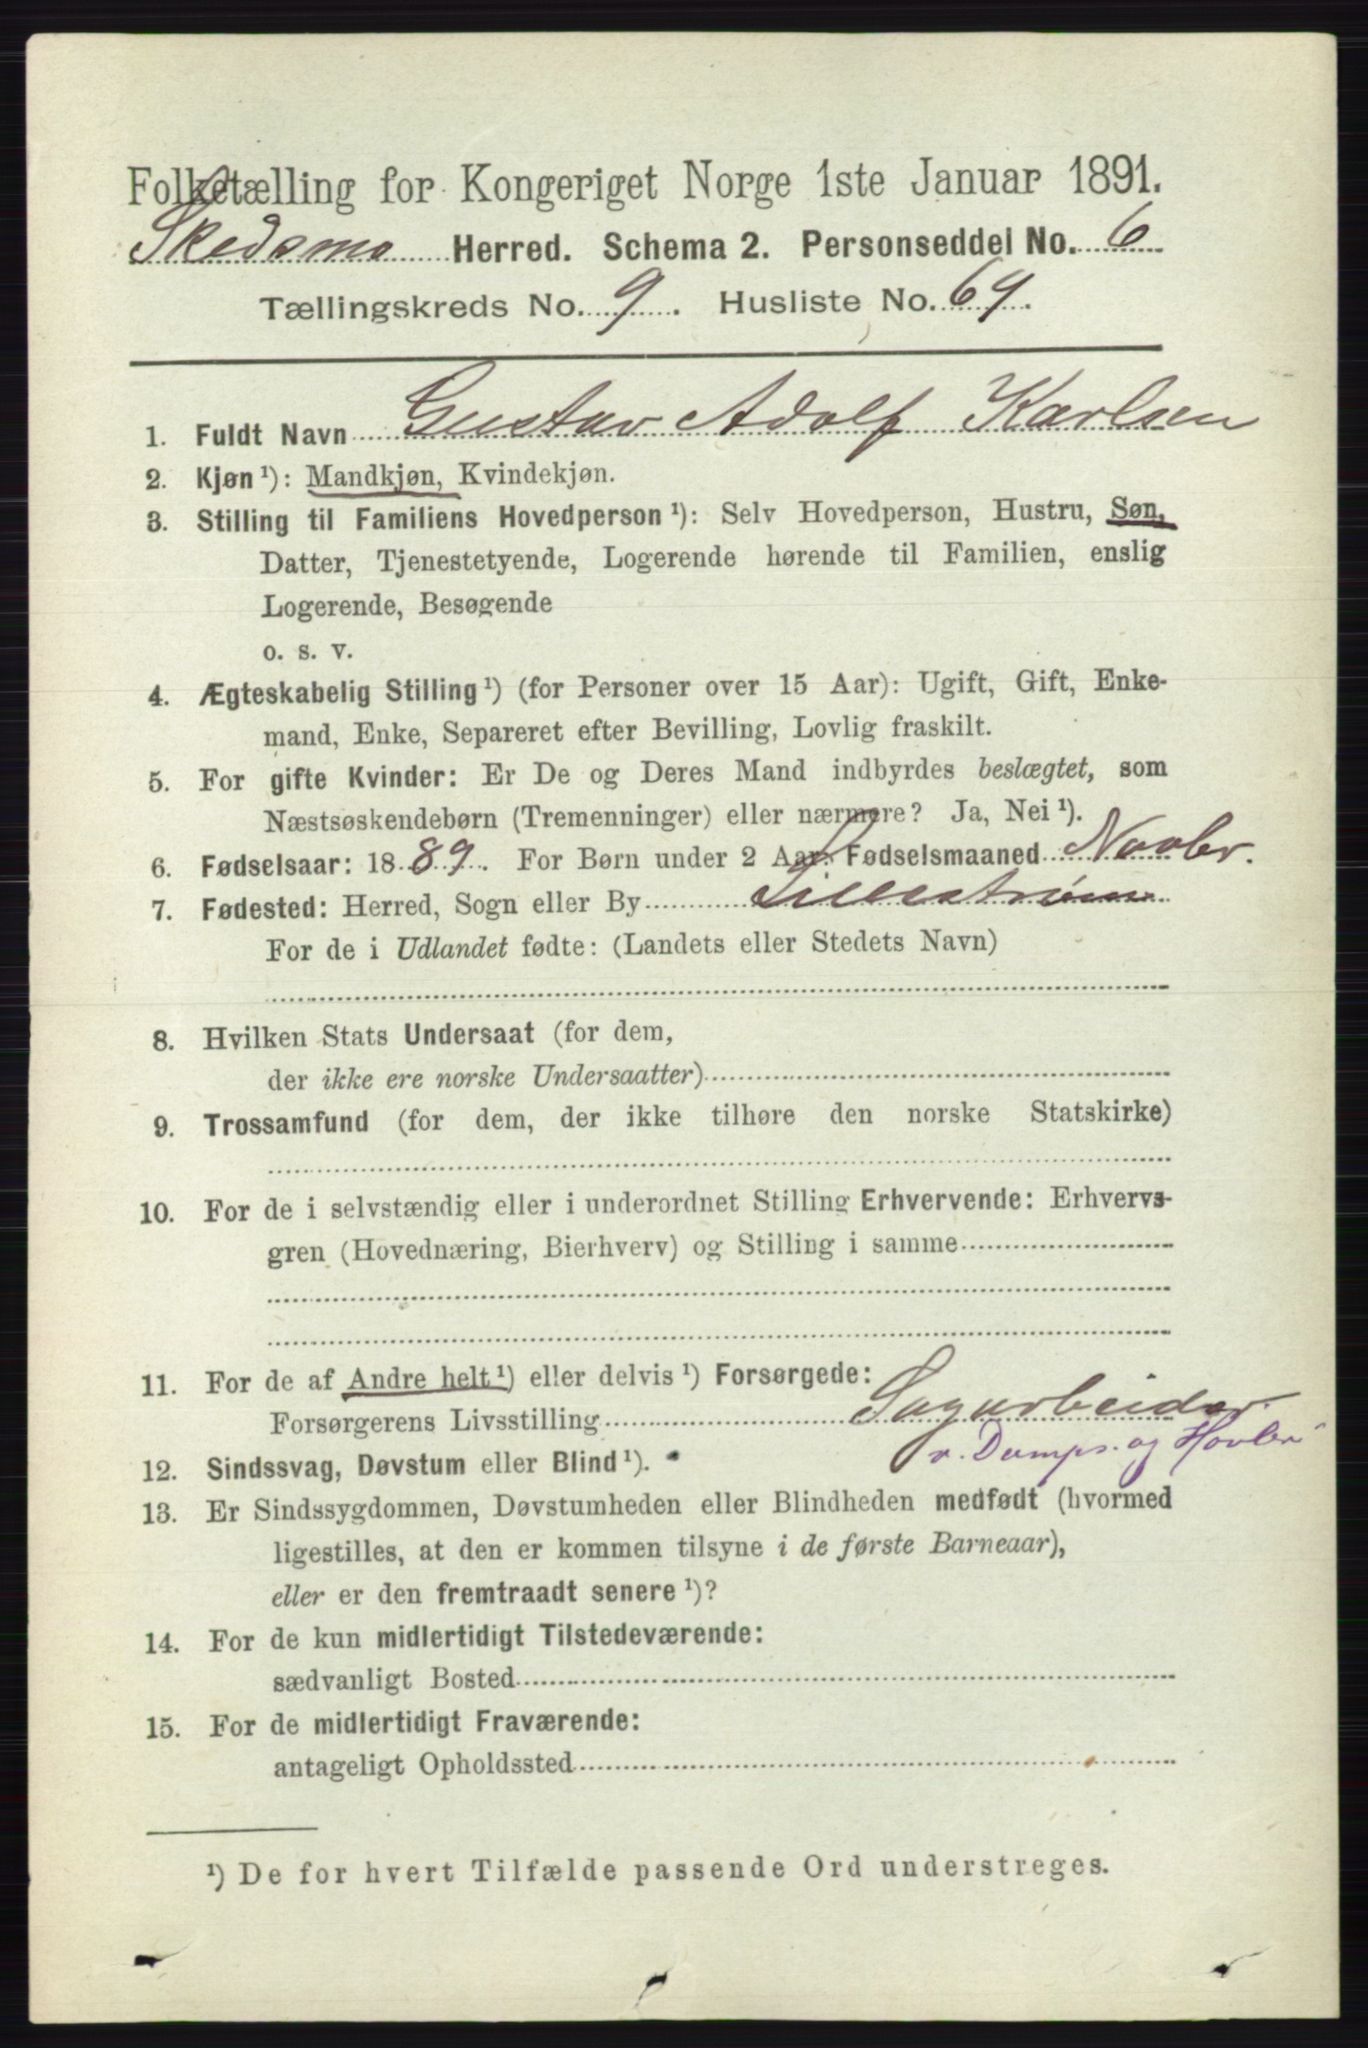 Folketælling for Kongeriget Norge 1ste Januar 1891.
Skedsmo Herred. Schema 2. Personseddel No. 6
Tællingskreds No. 9. Husliste No. 69.
1. Fuldt Navn Gustav Adolf Karlsen
2. Kjøn ¹): Mandkjøn, Kvindekjøn.
3. Stilling til Familiens Hovedperson ¹): Selv Hovedperson, Hustru, Søn,
Datter, Tjenestetyende, Logerende hørende til Familien, enslig
Logerende, Besøgende
o. s. v.
4. Ægteskabelig Stilling ¹) (for Personer over 15 Aar): Ugift, Gift, Enke-
mand, Enke, Separeret efter Bevilling, Lovlig fraskilt.
5. For gifte Kvinder: Er De og Deres Mand indbyrdes beslægtet, som
Næstsøskendebørn (Tremenninger) eller nærmere? Ja, Nei ¹).
6. Fødselsaar: 1889. For Børn under 2 Aar: Fødselsmaaned Novbr.
7. Fødested: Herred, Sogn eller By Lillestrøm
For de i Udlandet fødte: (Landets eller Stedets Navn)
8. Hvilken Stats Undersaat (for dem,
der ikke ere norske Undersaatter)
9. Trossamfund (for dem, der ikke tilhøre den norske Statskirke)
10. For de i selvstændig eller i underordnet Stilling Erhvervende: Erhvervs-
gren (Hovednæring, Bierhverv) og Stilling i samme
11. For de af Andre helt ¹) eller delvis ¹) Forsørgede:
Forsørgerens Livsstilling Sagarbeider.
v. Damps. og Høvler
12. Sindssvag, Døvstum eller Blind ¹).
13. Er Sindssygdommen, Døvstumheden eller Blindheden medfødt (hvormed
ligestilles, at den er kommen tilsyne i de første Barneaar),
eller er den fremtraadt senere ¹)?
14. For de kun midlertidigt Tilstedeværende:
sædvanligt Bosted
15. For de midlertidigt Fraværende:
antageligt Opholdssted
¹) De for hvert Tilfælde passende Ord understreges.